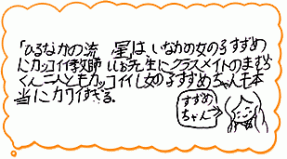 「ひるなかの流星」は、いなかの女の子すずめ
にカッコイイ教師しし先生にクラスメイトのまむら
くん二人ともカッコイイし女の子すずめちゃんも本
当にカワイすぎる。
すずめ
ちゃん→